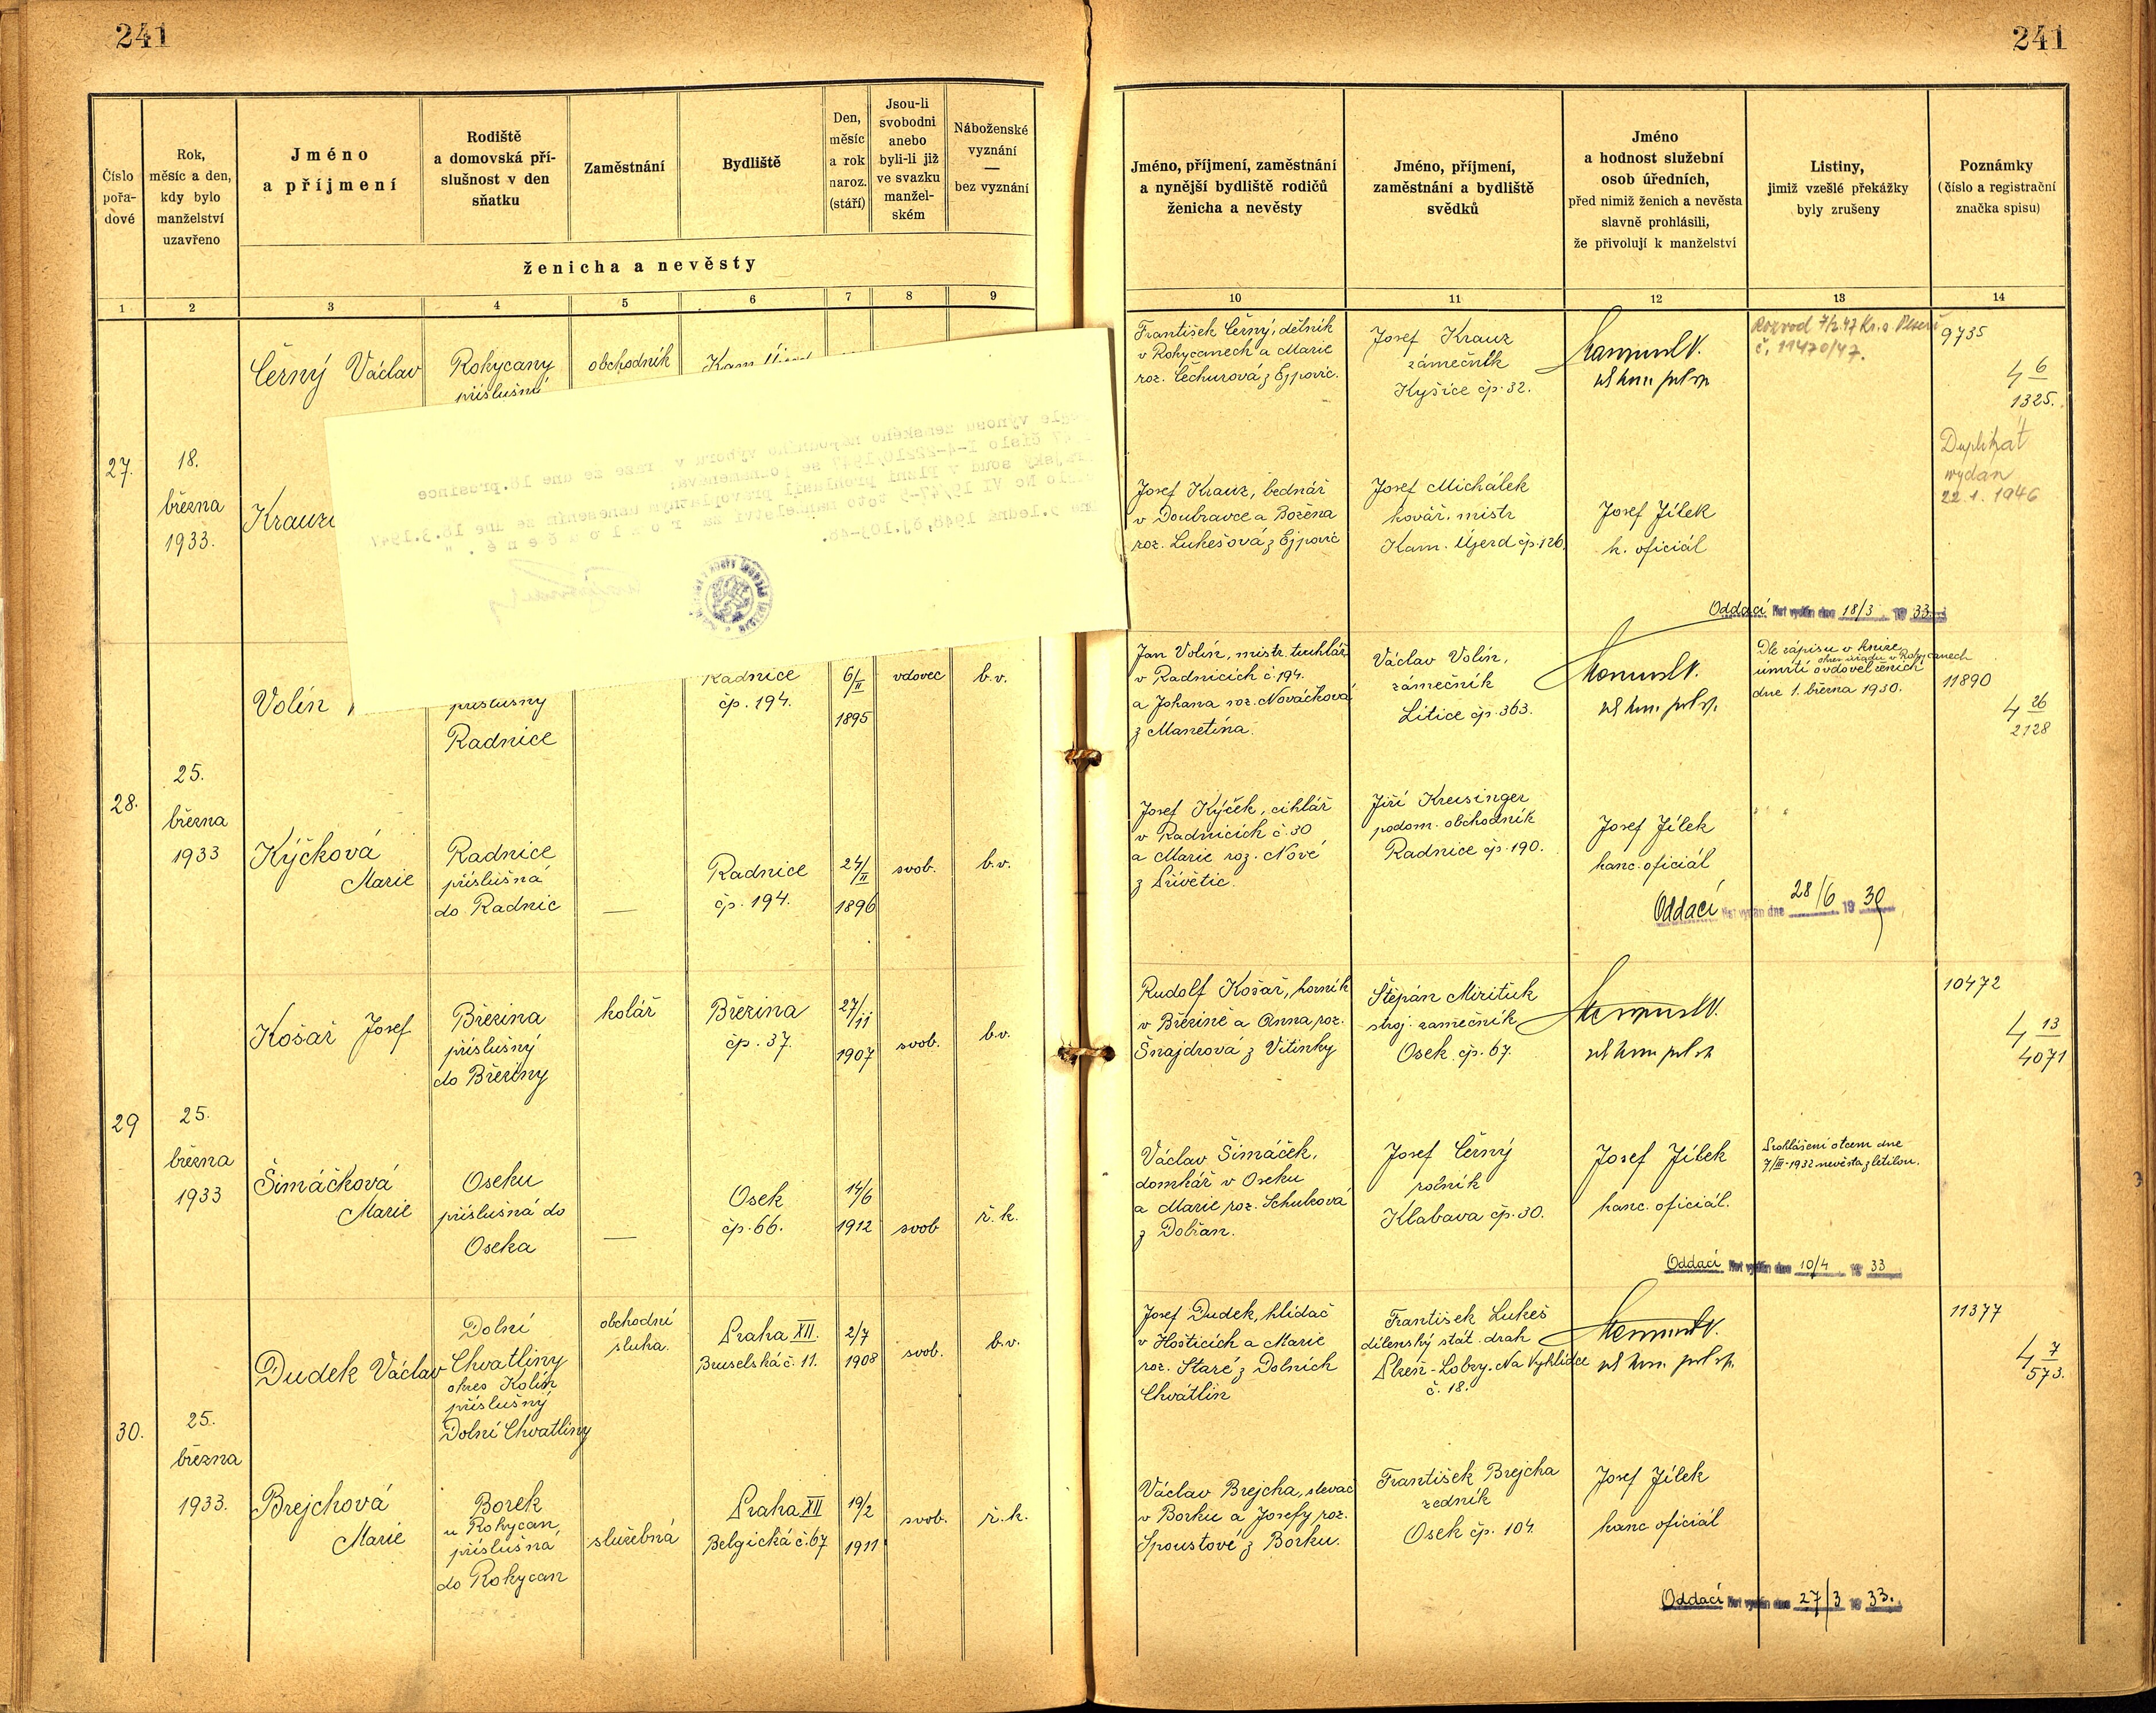 241
241
Číslo
pořa-
dové
Rok,
měsíc a den,
kdy bylo
manželství
uzavřeno
Jméno
a příjmení
Rodiště
a domovská pří-
slušnost v den
sňatku
Zaměstnání
Bydliště
Den,
měsíc
a rok
naroz.
(stáří)
Jsou-li
svobodni
anebo
byli-li již
ve svazku
manžel-
ském
Náboženské
vyznání
—
bez vyznání
ženicha a nevěsty
Jméno, příjmení, zaměstnání
a nynější bydliště rodičů
ženicha a nevěsty
Jméno, příjmení,
zaměstnání a bydliště
svědků
Jméno
a hodnost služební
osob úředních,
před nimiž ženich a nevěsta
slavně prohlásili,
že přivolují k manželství
Listiny,
jimiž vzešlé překážky
byly zrušeny
Poznámky
(číslo a registrační
značka spisu)
1 2 3 4 5 6 7 8 9 10 11 12 13 14
27.
18.
března
1933.
Černý Václav
Rokycany
příslušný
obchodník
František Černý, dělník
v Rokycanech a Marie
roz. Čechurová z Ejpovic.
Josef Krauz
zámečník
Kyšice čp. 32.
Rozvod 7/2.47 Kr. s. Plzeň
č. 11470/47.
9735
4 6
1325.
Duplikát
vydán
22.1.1946
Josef Krauz, bednář
v Doubravce a Božena
roz. Lukešová z Ejpovic
Josef Michálek
kovář. mistr
Kam. Újezd čp. 126
Josef Jílek
k. oficiál
Oddací list vydán dne 18/3 19 33
28.
25.
března
1933
Volín
příslušný
Radnice
Radnice
čp. 194.
6/II
1895
vdovec
b.v.
Jan Volín, mistr. truhlář
v Radnicích č. 194.
a Johana roz. Nováčková
z Manetína.
Václav Volín,
zámečník
Litice čp. 363.
Dle zápisu v knize
úmrtí okres. úřadu v Rokycanech
ovdověl ženich
dne 1. března 1930.
11890
4 26
2128
Kýčková
Marie
Radnice
příslušná
do Radnic
—
Radnice
čp. 194.
24/II
1896
svob.
b.v.
Josef Kýček, cihlář
v Radnicích č. 30
a Marie roz. Nové
z Přívětic.
Jiří Kreisinger
podom. obchodník
Radnice čp. 190.
Josef Jílek
kanc. oficiál
Oddací list vydán dne 28/6 19 39
29
25.
března
1933
Košař Josef
Březina
příslušný
do Březiny
kolář
Březina
čp. 37.
27/11
1907
svob.
b.v.
Rudolf Košař, horník
v Březině a Anna roz.
Šnajdrová z Vitinky
Štěpán Mirituk
stroj. zámečník
Osek čp. 67.
10472
4 13
4071
Šimáčková
Marie
Oseku
příslušná do
Oseka
—
Osek
čp. 66.
14/6
1912
svob
ř.k.
Václav Šimáček,
domkář v Oseku
a Marie roz. Schulcová
z Dobřan.
Josef Černý
rolník
Klabava čp. 30.
Josef Jílek
kanc. oficiál.
Prohlášení otcem dne
7/III-1932 nevěsta zletilou.
Oddací list vydán dne 10/4 19 33
30.
25.
března
1933.
Dudek Václav
Dolní
Chvatliny
okres Kolín
příslušný
Dolní Chvatliny
obchodní
sluha.
Praha XII.
Bruselská č. 11.
2/7
1908
svob.
b.v.
Josef Dudek, hlídač
v Hošticích a Marie
roz. Staré z Dolních
Chvátlin
František Lukeš
dílenský stát. drah
Plzeň-Lobzy. Na Vyhlídce
č. 18.
11377
4 7
573.
Brejchová
Marie
Borek
u Rokycan,
příslušná
do Rokycan
služebná
Praha XII
Belgická č. 67
19/2
1911
svob.
ř.k.
Václav Brejcha, slevač
v Borku a Josefy roz.
Spoustové z Borku.
František Brejcha
zedník
Osek čp. 104.
Josef Jílek
kanc oficiál
Oddací list vydán dne 27/3 19 33.